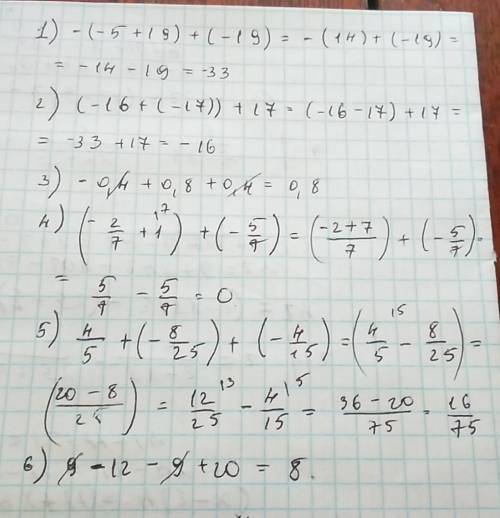 1) -(-5+19)+(-19) = -(14)+(-19) =
= -14-19 = -33
2) (-16+(-17))+17 = (-16-17)+17 =
= -33+17 = -16
3) -0,4+0,8+0,4 = 0,8
4) (-2/7+1\7)+(-5/7) = (-2+7/7)+(-5/7)=
= 5/7-5/7 = 0
5) 4/5+(-8/25)+(-4/15) = (4/5\5-8/25) =
(20-8/25) = 12/25\3-4/15\5 = 36-20/75 = 16/75
6) 9-12-9+20 = 8.